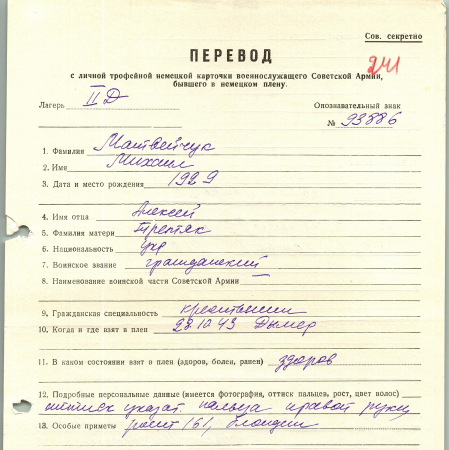 Сов. секретно
ПЕРЕВОД
241
с личной трофейной немецкой карточки военнослужащего Советской Армии,
бывшего в немецком плену.
Лагерь II D Опознавательный знак
№ 93886
1. Фамилия Матвейчук
2. Имя Михаил
3. Дата и место рождения 1929
4. Имя отца Алексей
5. Фамилия матери Третяк
6. Национальность укр
7. Воинское звание гражданский
8. Наименование воинской части Советской Армии —
9. Гражданская специальность крестьянин
10. Когда и где взят в плен 28.10.43 Дымер
11. В каком состоянии взят в плен (здоров, болен, ранен) здоров
12. Подробные персональные данные (имеется фотография, оттиск пальцев, рост, цвет волос)
оттиск указат. пальца правой руки
13. Особые приметы рост 161, блондин